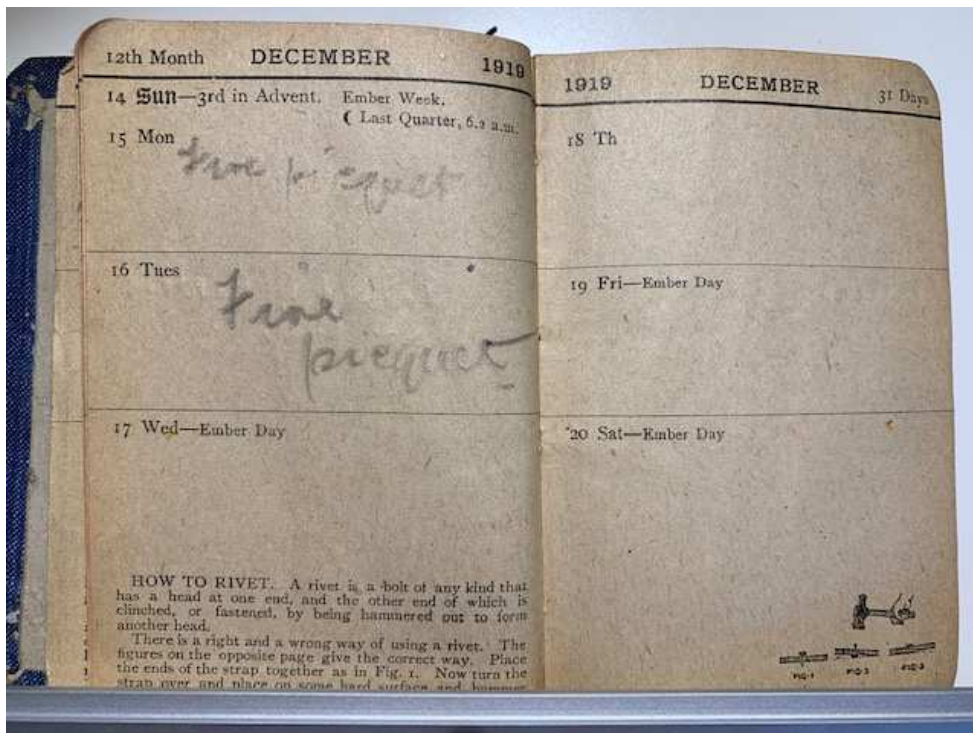 12th Month DECEMBER 1919
14 Sun—3rd in Advent. Ember Week.
( Last Quarter, 6.2 a.m.
15 Mon
Fire picquet
16 Tues
Fire
picquet
17 Wed—Ember Day
HOW TO RIVET. A rivet is a bolt of any kind that
has a head at one end, and the other end of which is
clinched, or fastened, by being hammered out to form
another head.
There is a right and a wrong way of using a rivet. The
figures on the opposite page give the correct way. Place
the ends of the strap together as in Fig. 1. Now turn the
strap over and place on some hard surface and hammer
1919 DECEMBER 31 Days
18 Th
19 Fri—Ember Day
20 Sat—Ember Day
FIG·1 FIG·2 FIG·3